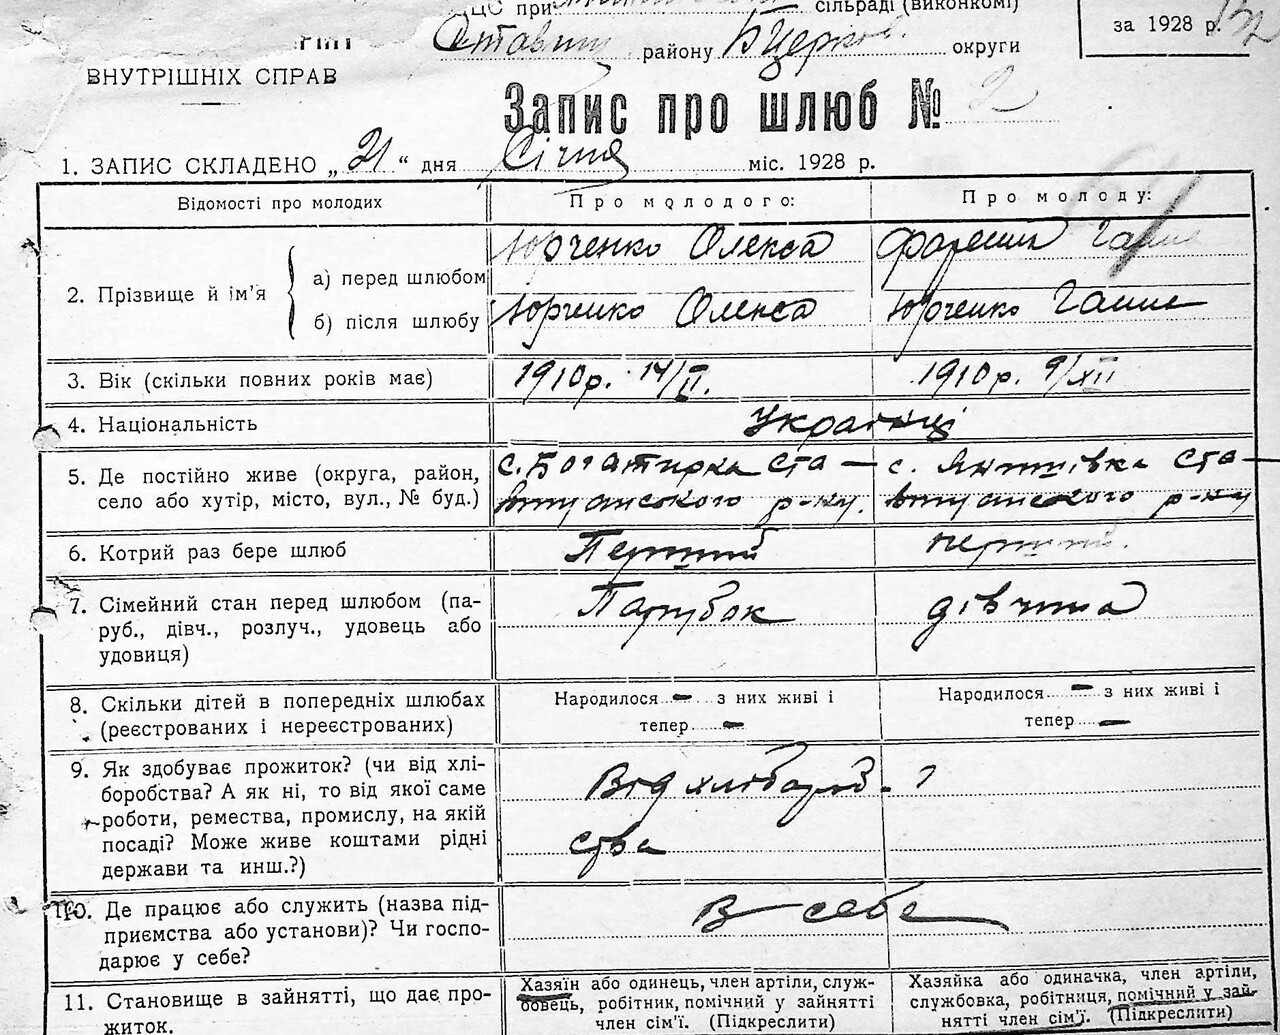 ЦС при сільраді (виконкомі)
Ставищ. району Бцерков. округи
за 1928 р.
ВНУТРІШНІХ СПРАВ
Запис про шлюб № 2
1. ЗАПИС СКЛАДЕНО „ 21 “ дня Січня міс. 1928 р.
Відомості про молодих
Про молодого:
Про молоду:
2. Прізвище й ім’я
а) перед шлюбом
Юрченко Олекса
Ганна
б) після шлюбу
Юрченко Олекса
Юрченко Ганна
3. Вік (скільки повних років має)
1910р. 14/II.
1910р. 9/XII
4. Національність
Українці
5. Де постійно живе (округа, район,
село або хутір, місто, вул., № буд.)
с. Богатирка Ста—
вищанського р-ну.
с. Янишівка Ста—
вищанського р-ну
6. Котрий раз бере шлюб
Перший
перший.
7. Сімейний стан перед шлюбом (па-
руб., дівч., розлуч., удовець або
удовиця)
Парубок
дівчина
8. Скільки дітей в попередніх шлюбах
(реєстрованих і нереєстрованих)
Народилося — з них живі і
тепер —
Народилося — з них живі і
тепер —
9. Як здобуває прожиток? (чи від хлі-
боробства? А як ні, то від якої саме
роботи, ремества, промислу, на якій
посаді? Може живе коштами рідні
держави та инш.?)
Від хлібороб-
ства
10. Де працює або служить (назва під-
приємства або установи)? Чи госпо-
дарює у себе?
В себе
11. Становище в зайнятті, що дає про-
житок.
Хазяїн або одинець, член артіли, служ-
бовець, робітник, помічний у зайнятті
член сім’ї. (Підкреслити)
Хазяйка або одиначка, член артіли,
службовка, робітниця, помічний у зай-
нятті член сім’ї. (Підкреслити)